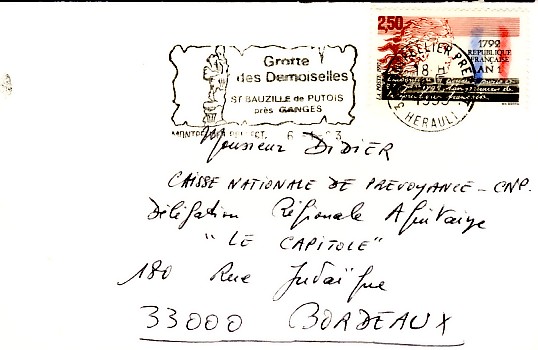 Grotte
des Demoiselles
ST BAUZILLE de PUTOIS
près GANGES
2,50
1792
REPUBLIQUE
FRANÇAISE
AN 1
18 H
HERAULT
Monsieur DIDIER
CAISSE NATIONALE DE PREVOYANCE - CNP.
Délégation Régionale Aquitaine
"LE CAPITOLE"
180 Rue Judaïque
33000 BORDEAUX